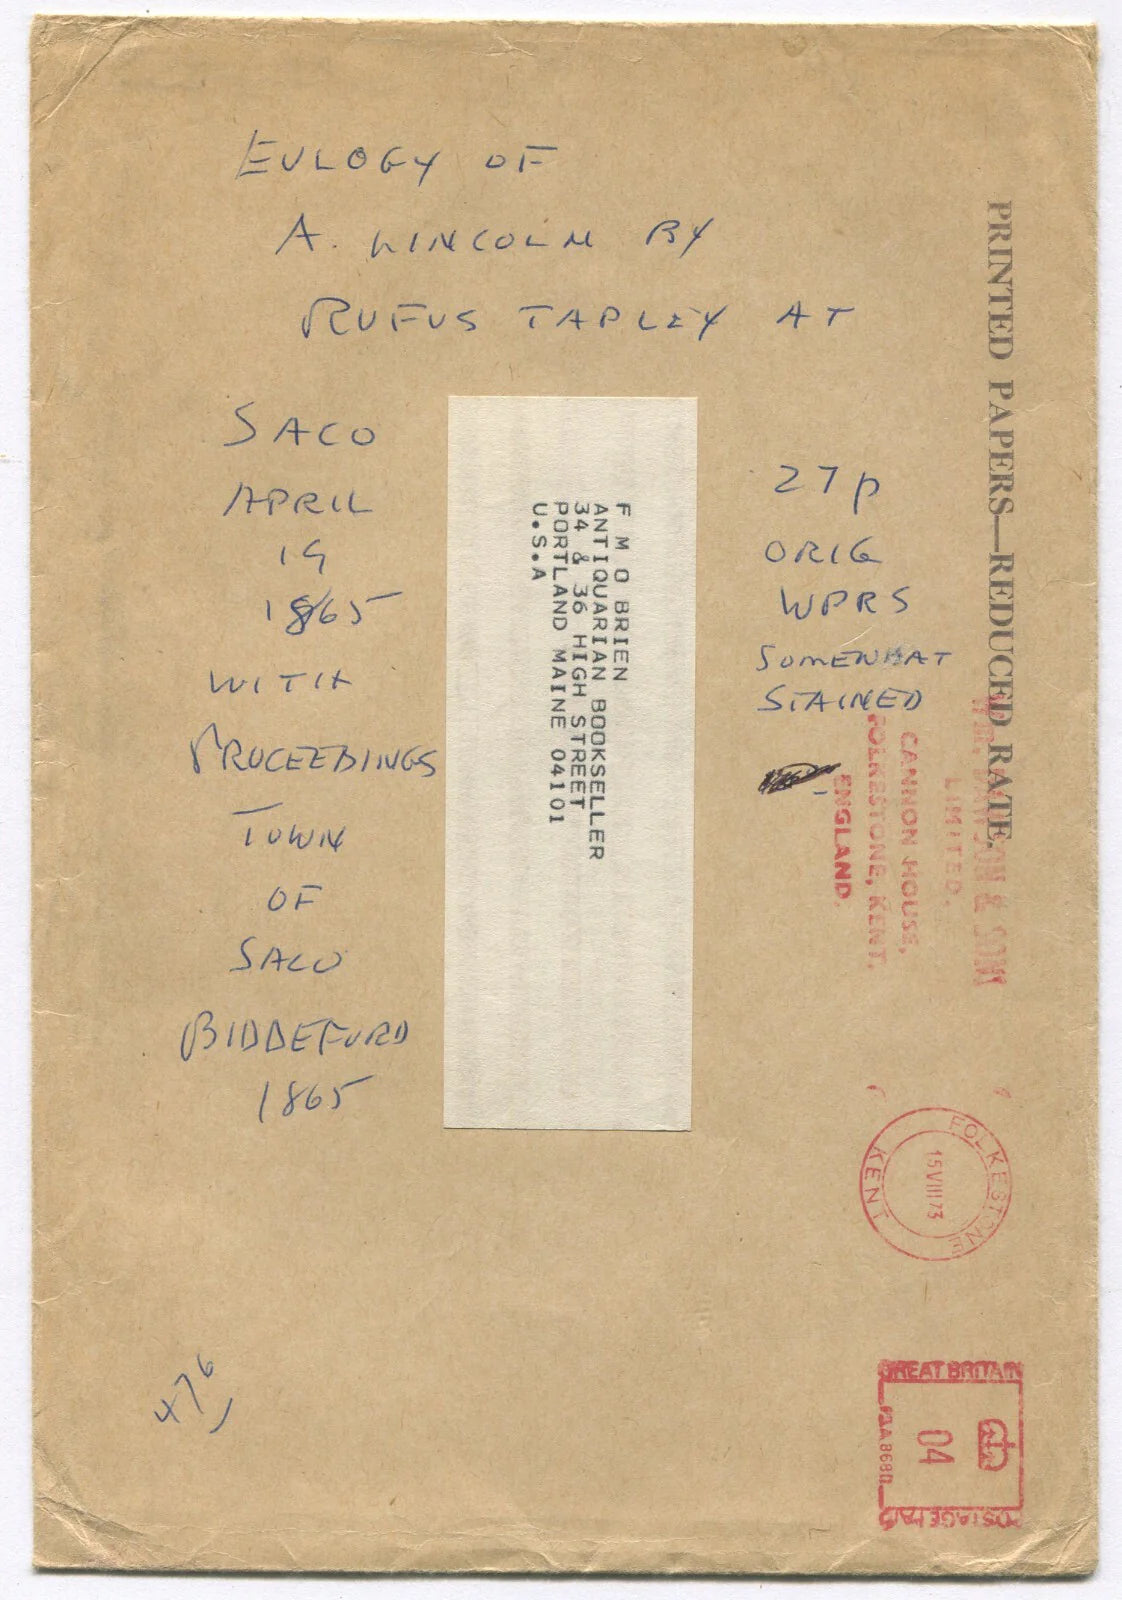 EULOGY OF
A. LINCOLN BY
RUFUS TAPLEY AT
SACO
APRIL
19
1865
WITH
PROCEEDINGS
TOWN
OF
SACO
BIDDEFORD
1865
27p
ORIG
WPRS
SOMEWHAT
STAINED
F M O BRIEN
ANTIQUARIAN BOOKSELLER
34 & 36 HIGH STREET
PORTLAND MAINE 04101
U.S.A
PRINTED PAPERS—REDUCED RATE.
& SON
LIMITED.
CANNON HOUSE,
FOLKESTONE, KENT.
ENGLAND.
FOLKESTONE
KENT
15 VIII 73
GREAT BRITAIN
04
POSTAGE PAID